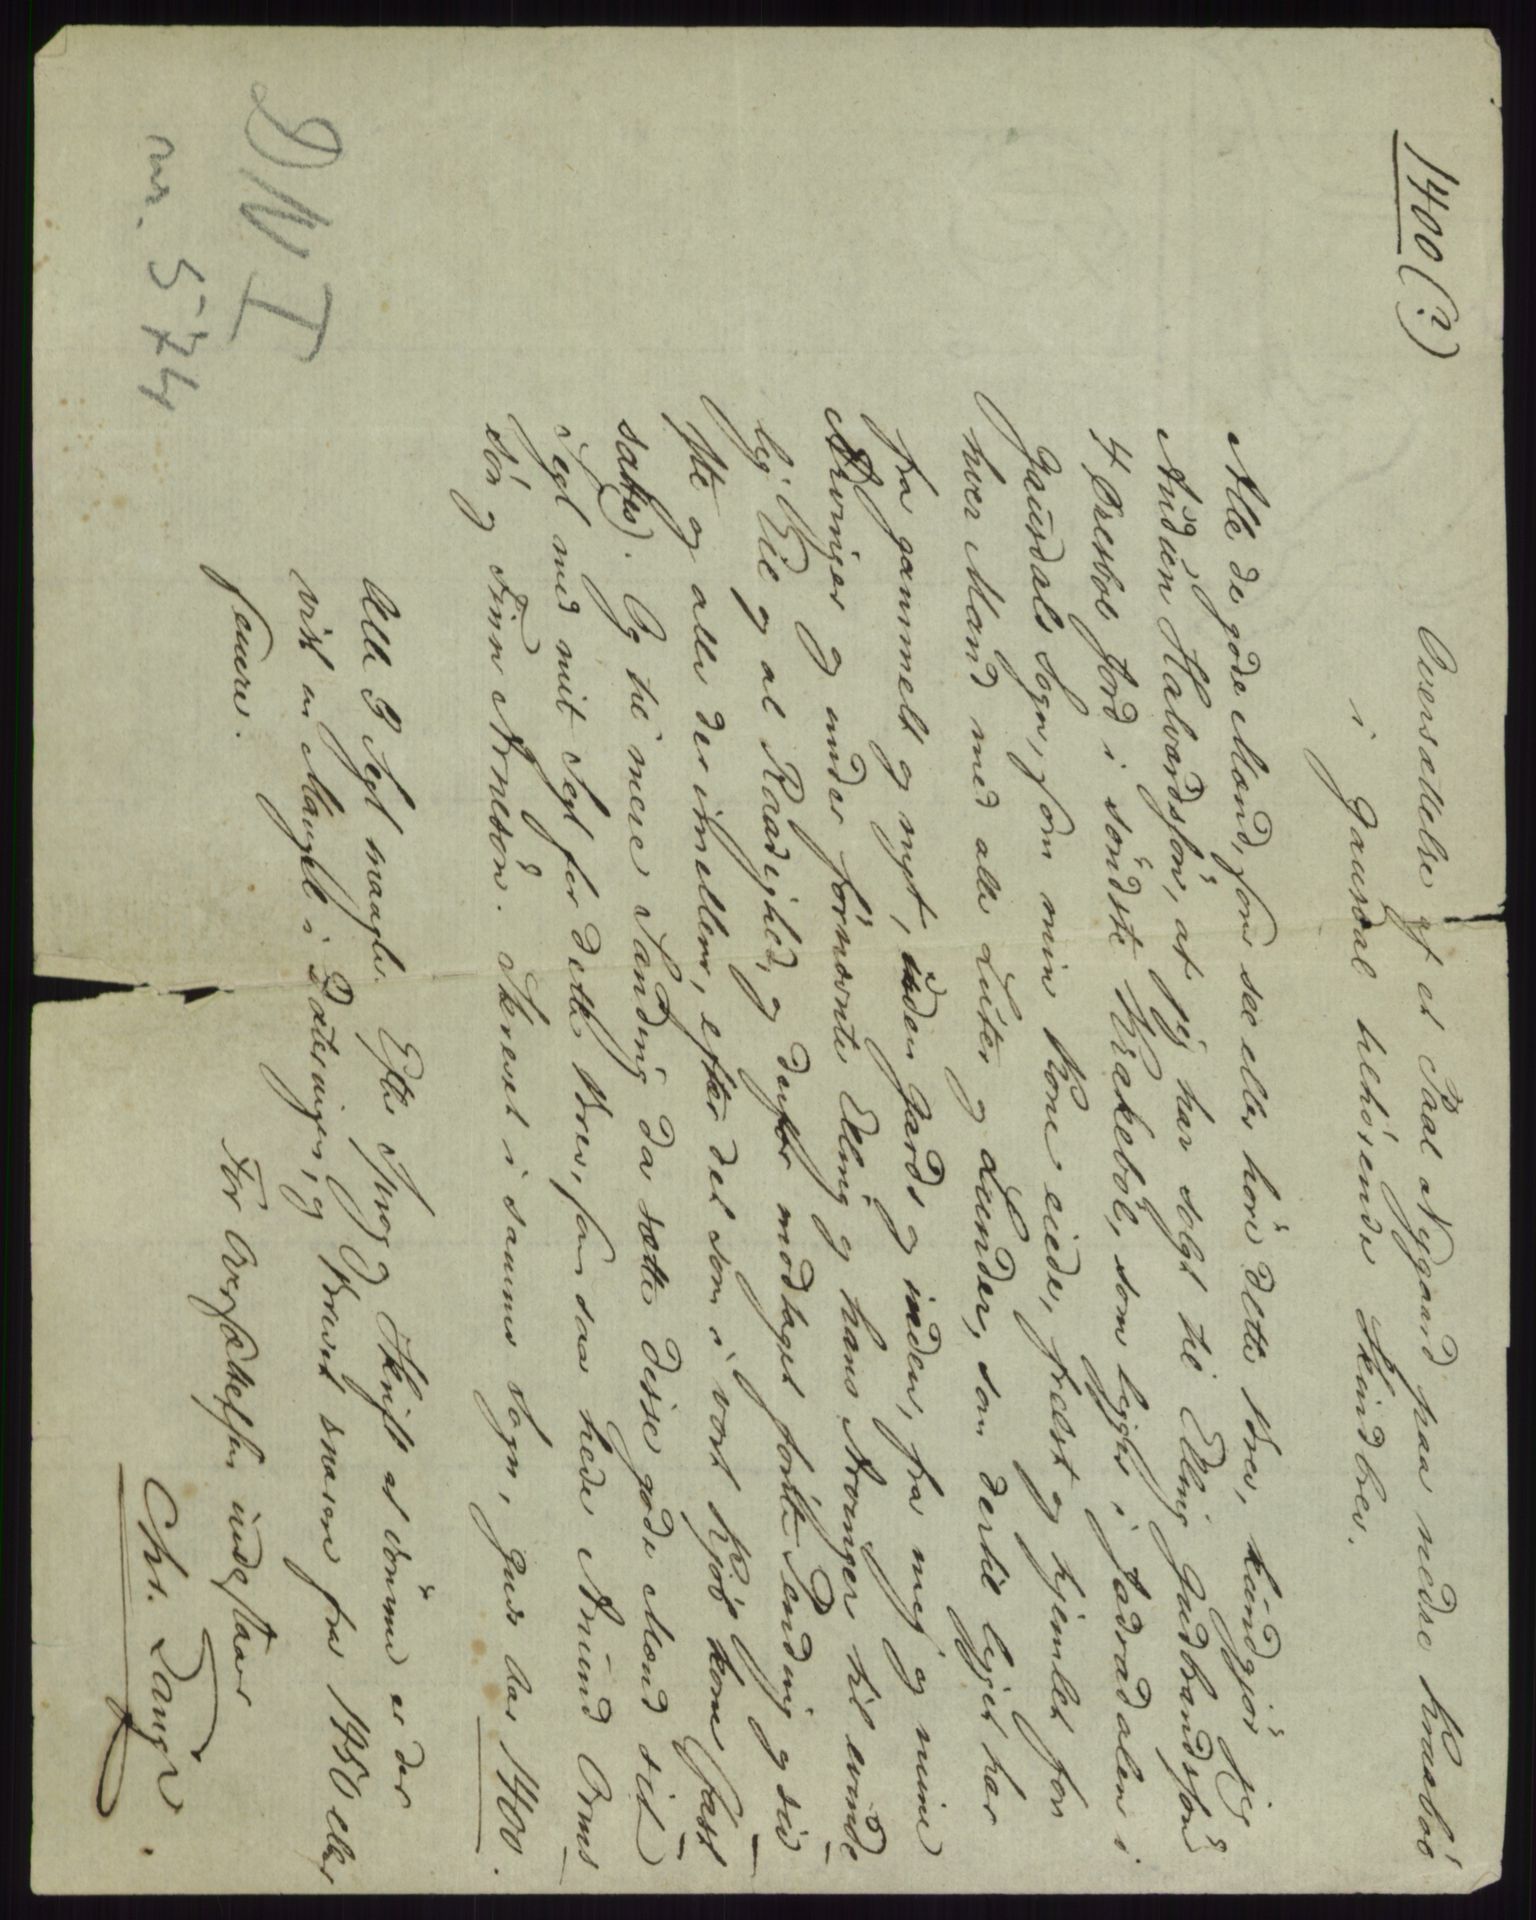 1400(?)
Oversættelse af et Paal Nygaard paa nedre Kræeböe
i Gausdal tilhörende Skindbrev.
Alle de gode Mænd, som see eller höre dette Brev, kundgjör jeg
Auduen Halvardssön, at jeg har solgt til Elling Gudbrandssön
4 Öresbol Jord i söndste Krækeböle, som ligger i Fadradalen i
Gausdals Sogn, som min Kone eiede, frelst og hjemlet for
hver Mand med alle Luter og Lunder, som dertil ligget har
fra gammelt og nyt, uden Gards og inden, fra meg og mine
Arvinger og under förnevnte Elling og hans Arvinger til evinde-
lig Eie og al Raadighed, og derfor modtaget förste Penning og sid-
ste og alle der imellem, efter det som i vort Kjöb kom (fast-
sattes). Og til mere Sanding da sætte disse gode Mænd sit
Segl med mit Segl for dette Brev, som saa hede Amund Orms-
sön og Finn Arnesön. Skrevet i samme Sogn, Guds Aar 1400.
Alle 3 Segl mangle. Efter Sprog og Skrift at dömme er der
vist en Mangel i Dateringen, og Brevet snarere fra 1450 eller
senere.
For Oversættelsen indestaar
Chr. Lange.
DN I
nr. 574